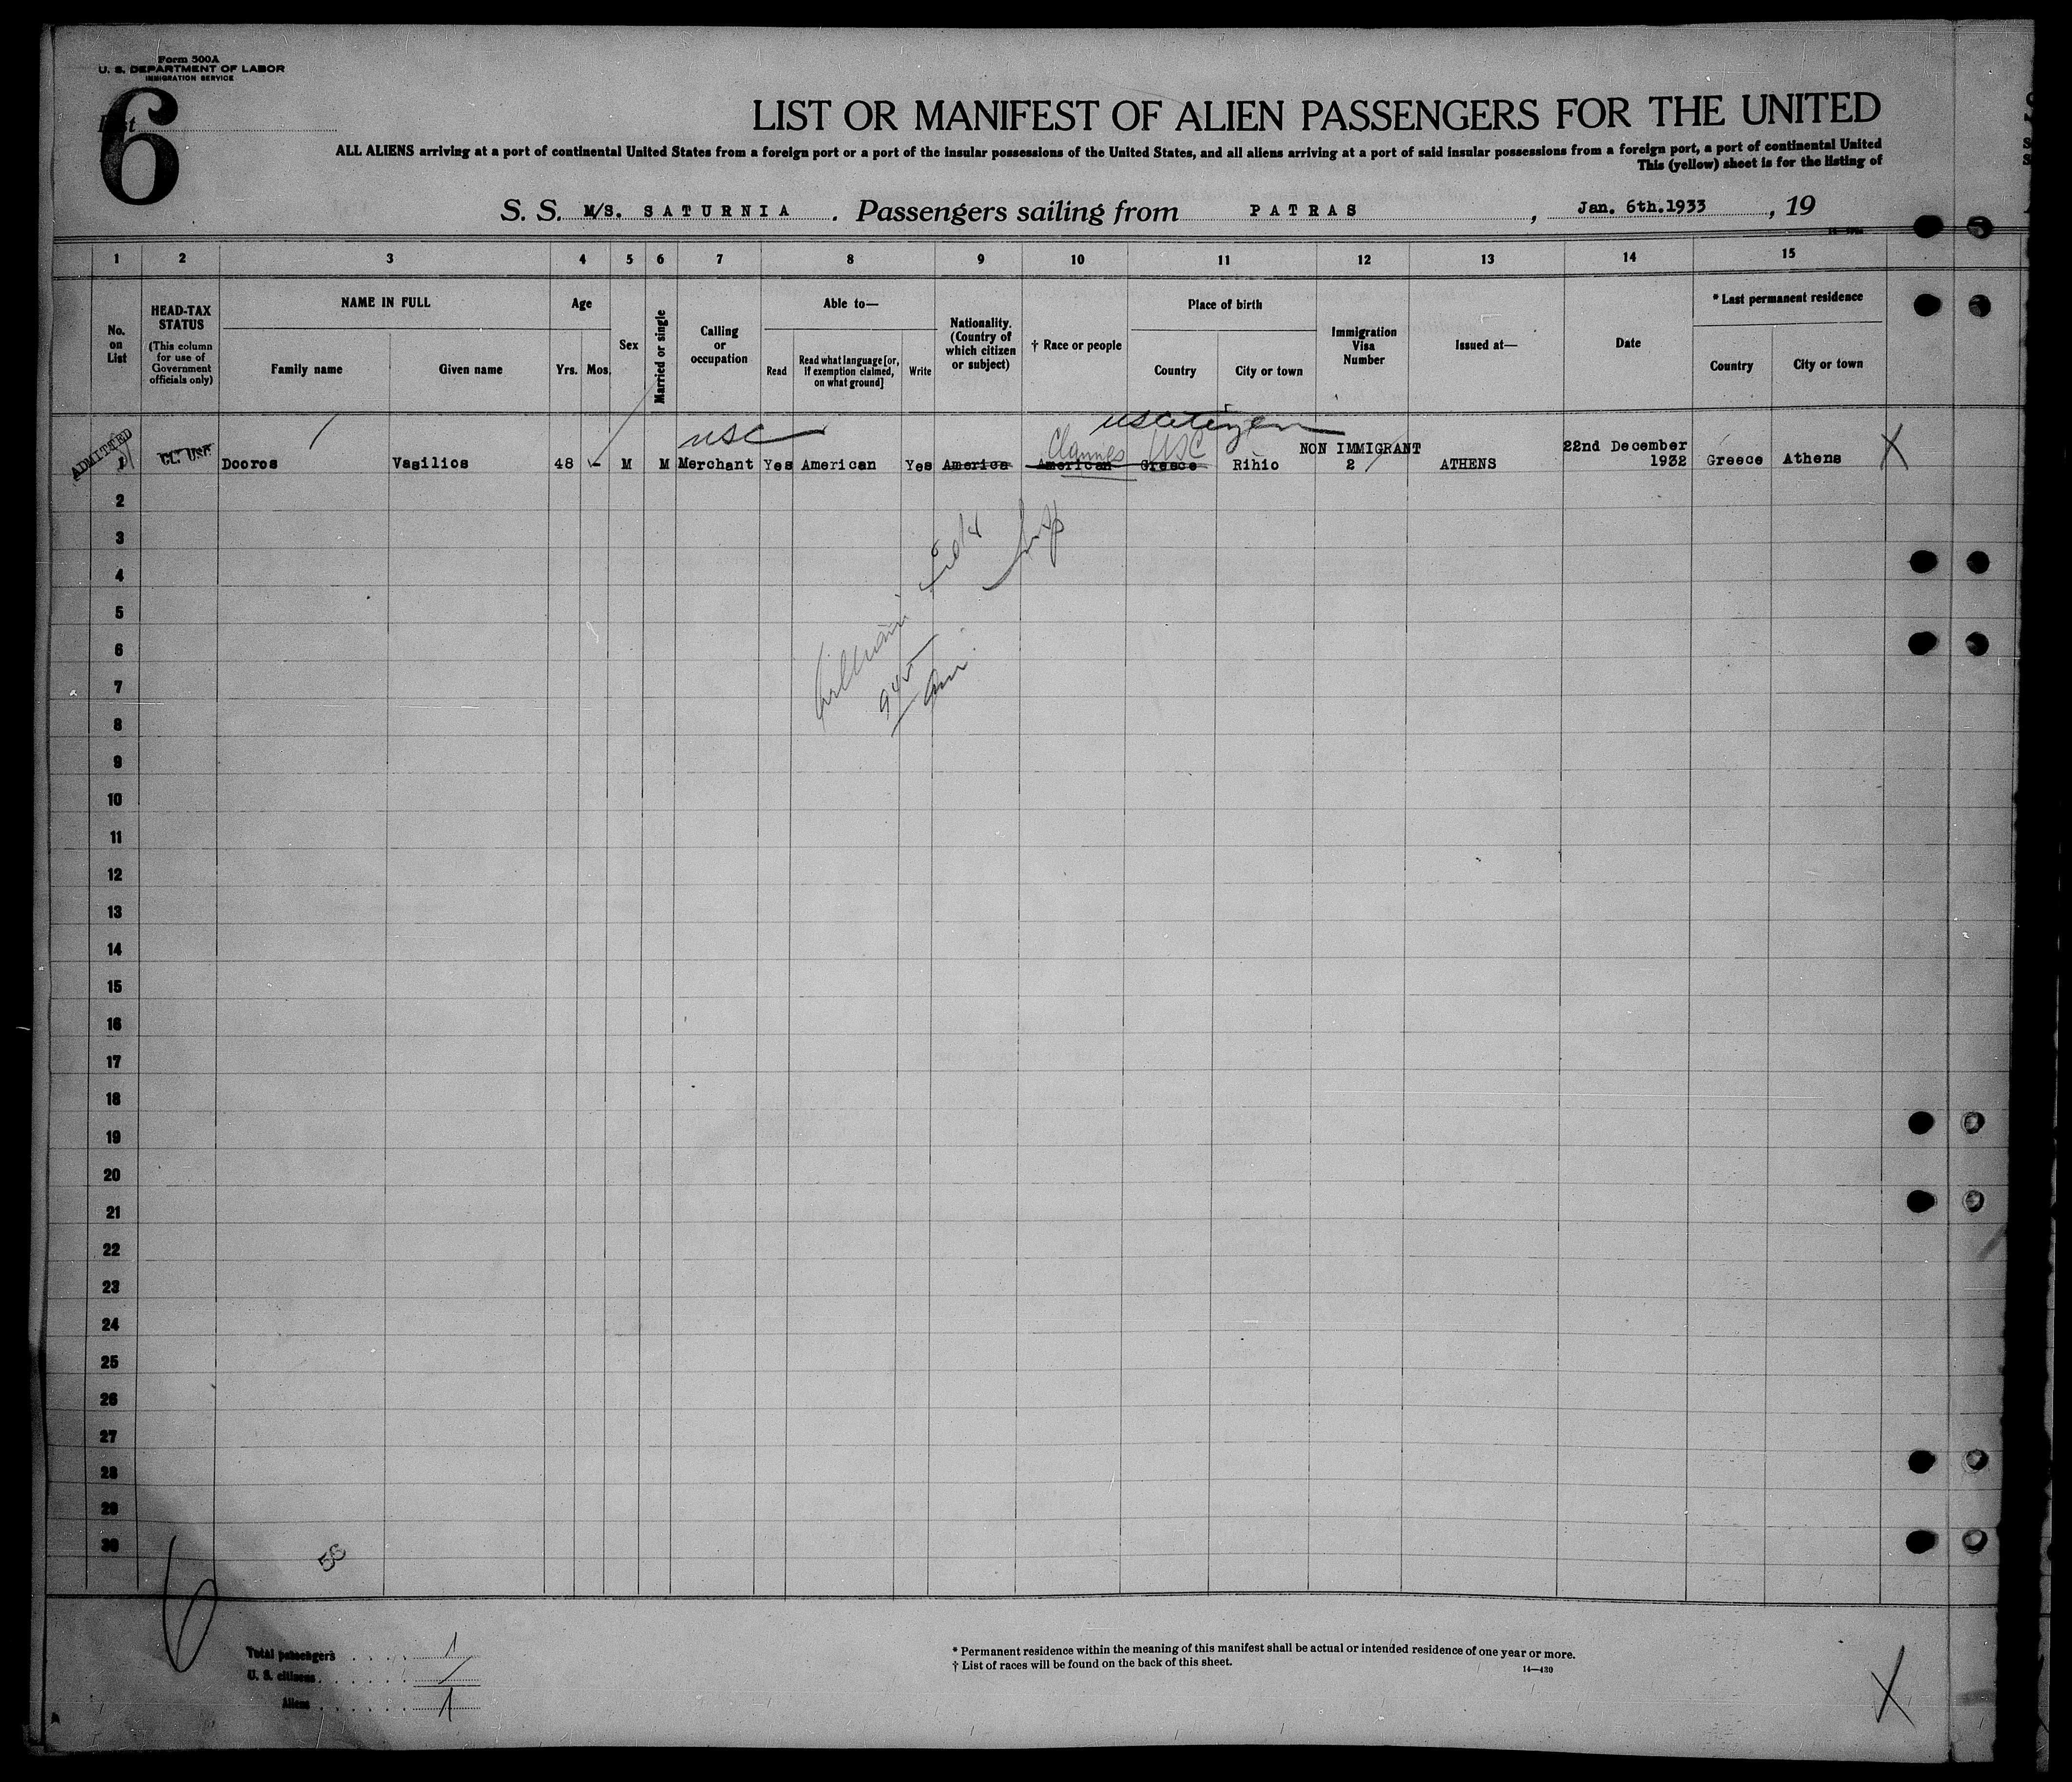 Form 500A
U. S. DEPARTMENT OF LABOR
IMMIGRATION SERVICE
List
6
LIST OR MANIFEST OF ALIEN PASSENGERS FOR THE UNITED
ALL ALIENS arriving at a port of continental United States from a foreign port or a port of the insular possessions of the United States, and all aliens arriving at a port of said insular possessions from a foreign port, a port of continental United
This (yellow) sheet is for the listing of
S. S. M/S. SATURNIA . Passengers sailing from PATRAS , Jan. 6th.1933 , 19
1 2 3 4 5 6 7 8 9 10 11 12 13 14 15
No. on List
HEAD-TAX STATUS
(This column for use of Government officials only)
NAME IN FULL
Family name
Given name
Age
Yrs.
Mos.
Sex
Married or single
Calling or occupation
Able to—
Read
Read what language [or, if exemption claimed, on what ground]
Write
Nationality. (Country of which citizen or subject)
† Race or people
Place of birth
Country
City or town
Immigration Visa Number
Issued at—
Date
* Last permanent residence
Country
City or town
usc
uscitizen
ADMITTED
Claimes USC
NON IMMIGRANT
22nd December
1 Dooros Vasilios 48 - M M Merchant Yes American Yes America American Greece Rihio 2 ATHENS 1932 Greece Athens X
2
3
4
5
6
7
945
8
9
10
11
12
13
14
15
16
17
18
19
20
21
22
23
24
25
26
27
28
29
30
56
6
Total passengers 1
U. S. citizens /
Aliens 1
* Permanent residence within the meaning of this manifest shall be actual or intended residence of one year or more.
† List of races will be found on the back of this sheet.
14—430
X